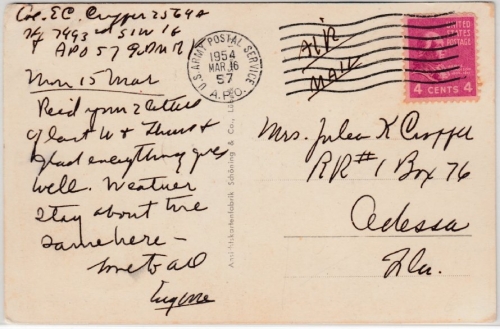 Col. E.C. Cropper 2564A
Hq 7493
APO 57
Mon 15 Mar
Rec'd your 2 letters
of last W & Thurs &
glad everything goes
well. Weather
stay about the
same here –
love to all
Eugene
U.S. ARMY POSTAL SERVICE
1954
MAR 16
57
A.P.O.
AIR
MAIL
UNITED
STATES
POSTAGE
4 CENTS 4
Mrs. Julea K Cropper
RR #1 Box 76
Odessa
Fla.
Ansichtskartenfabrik Schöning & Co., Lü